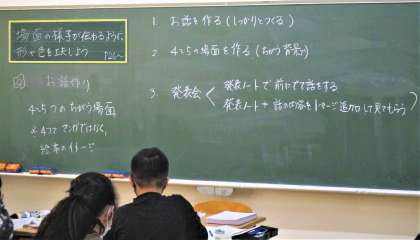 場面の様子が伝わるように
形や色を工夫しよう P26~
お話作り
4〜5つのちがう場面
※4コママンガではなく、
絵本のイメージ
1. お話を作る(しっかりとつくる)
2. 4〜5の場面を作る(ちがう背景)
3. 発表会
発表ノートで前にでて話をする
発表ノート + 話の内容を1ページ追加して見てもらう